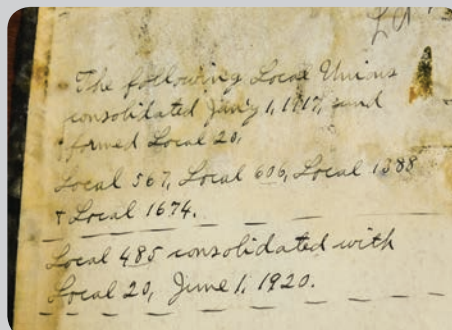 The following Local Unions
consolidated Jan'y 1, 1917, and
formed Local 20,
Local 567, Local 606, Local 1388
& Local 1674.
Local 485 consolidated with
Local 20, June 1, 1920.